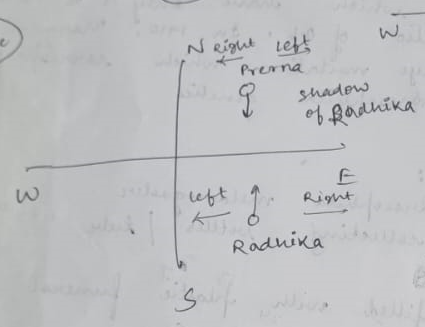 W
N right left
Prerna
shadow
of Radhika
W
E
left
Right
Radhika
S